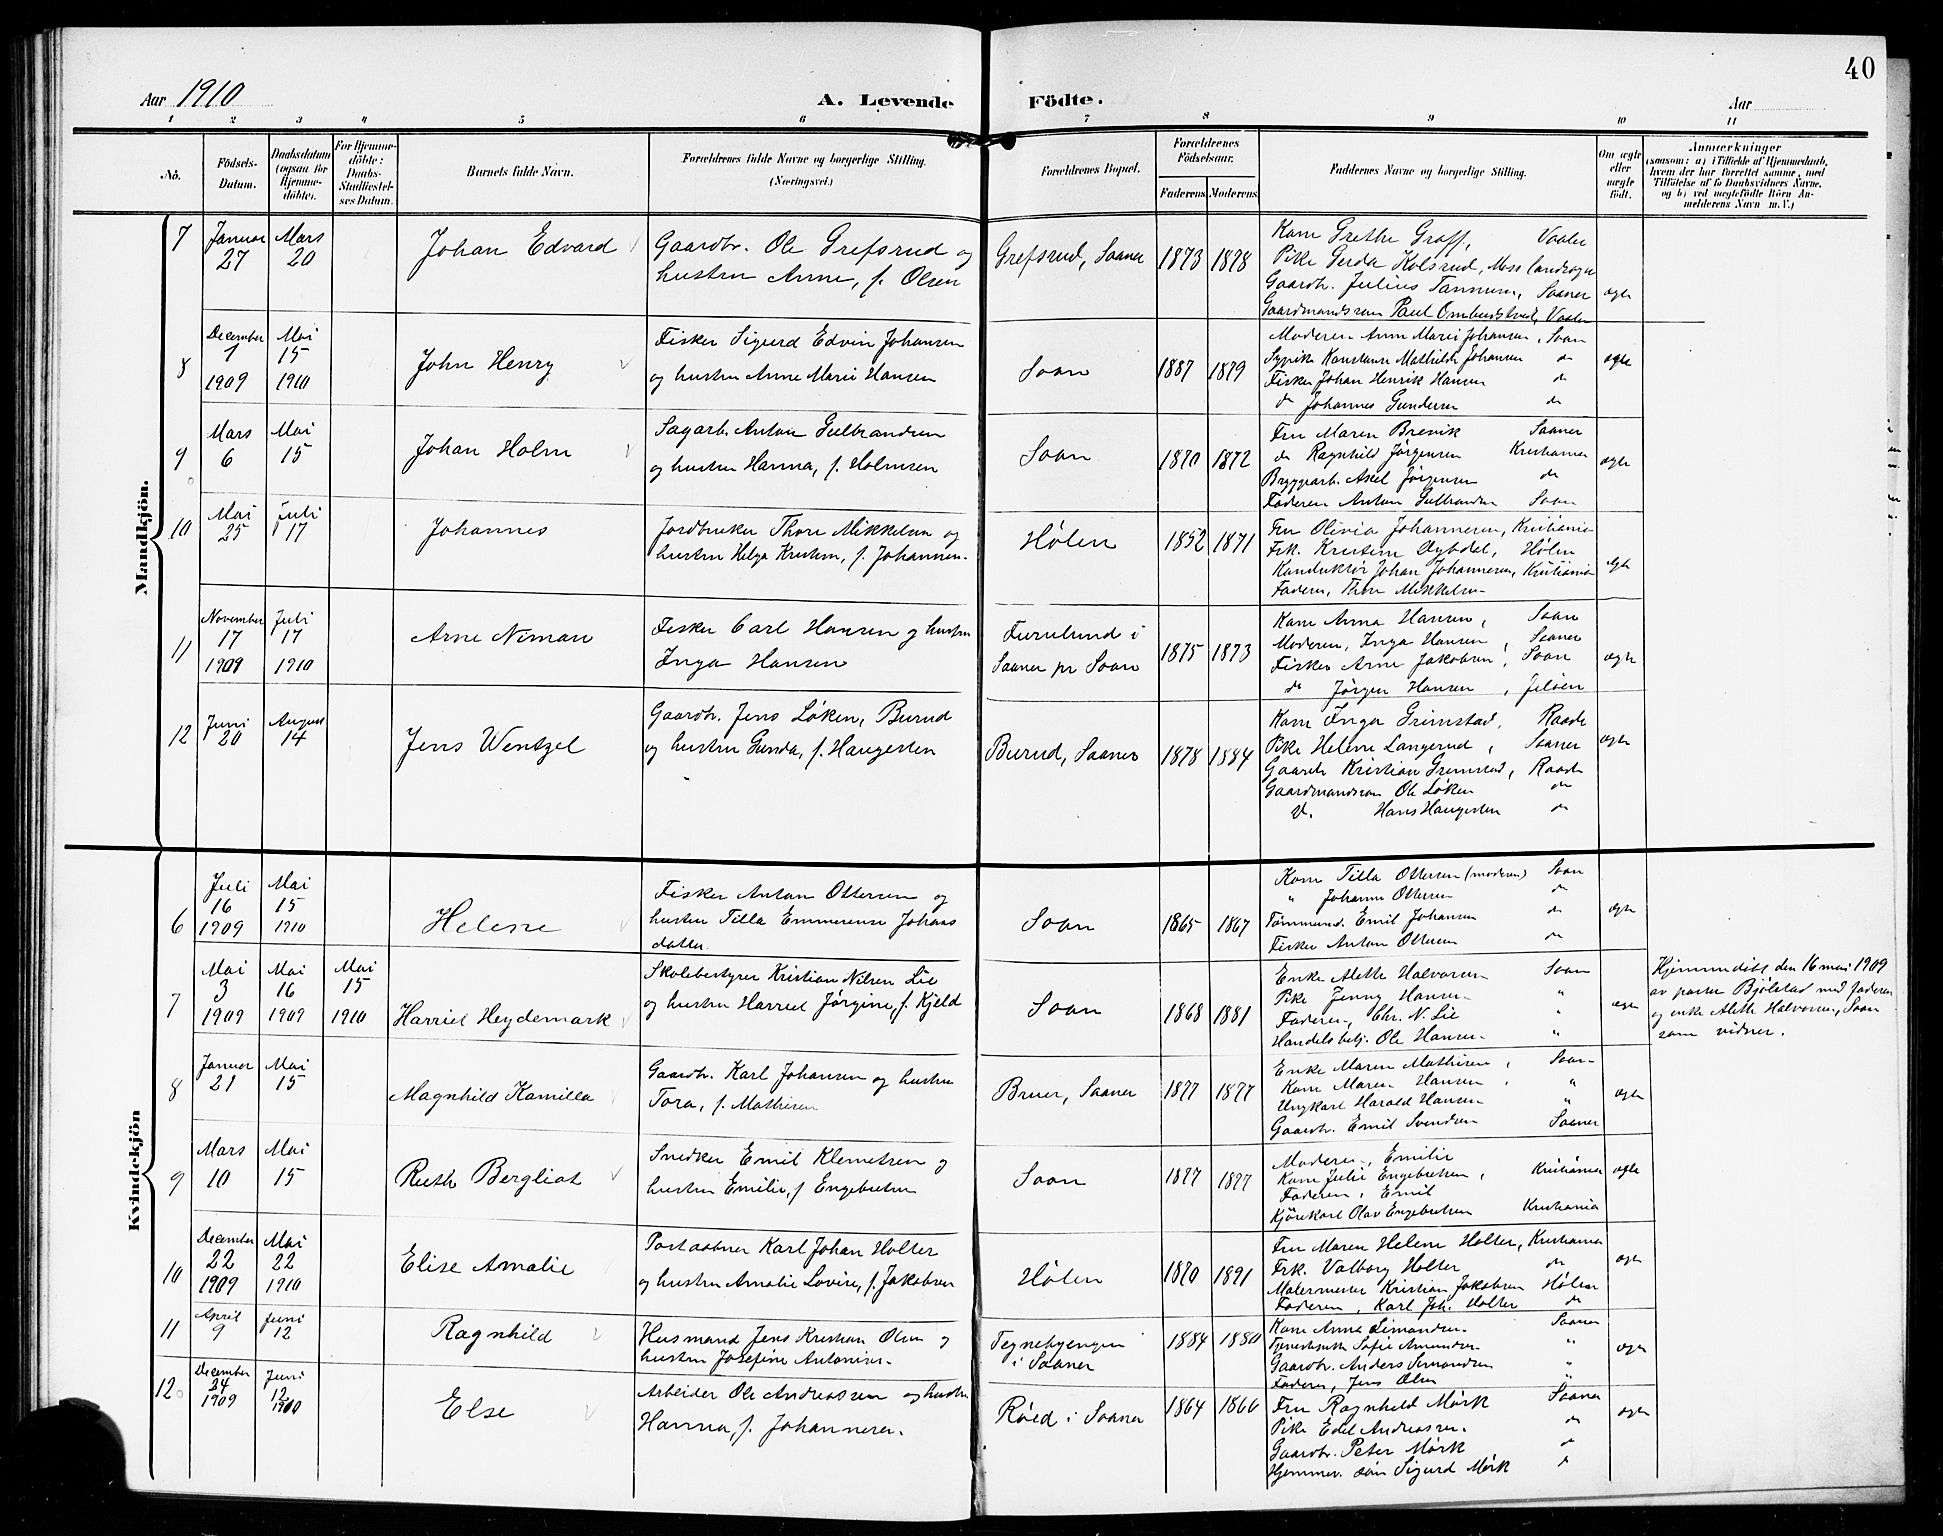 40
Aar 1910
A. Levende Födte.
Aar
1 2 3 4 5 6 7 8 9 10 11
No.
Födsels-Datum.
Daabsdatum (ogsaa for Hjemme-döbte).
For Hjemme-döbte: Daabs-Stadfæstel-ses Datum.
Barnets fulde Navn.
Forældrenes fulde Navne og borgerlige Stilling. (Næringsvei.)
Forældrenes Bopæl.
Forældrenes Födselsaar.
Faderens Moderens
Faddernes Navne og borgerlige Stilling.
Om ægte eller uægte født.
Anmærkninger
(saasom: a) i Tilfælde af Hjemmedaab, hvem der har forrettet samme, med Tilföielse af to Daabsvidners Navne, og b) ved uægtefödte Börn An-melderens Navn m. V.)
Mandkjön.
7 Januar 27 Mars 20
Johan Edvard
Gaardbr. Ole Grefsrud og
hustru Anne, f. Olsen
Grefsrud, Saaner 1873 1878
Kone Grethe Graff, Vaaler
Pike Gerda Kolsrud, Moss landsogn
Gaardbr. Julius Tannum, Saaner
Gaardmandssøn Paul Ombudstvedt, Vaaler
ægte
8 December 1 1909 Mai 15 1910
John Henry
Fisker Sigurd Edvin Johansen
og hustru Anne Marie Hansen
Soon 1887 1879
Moderen Anne Marie Johansen, Soon
Sypike Konstanse Mathilde Johansen do
Fisker Johan Henrik Hansen do
do Johannes Gundersen do
ægte
9 Mars 6 Mai 15
Johan Holm
Sagarb. Anton Gulbrandsen
og hustru Hanna, f. Holmsen
Soon 1870 1872
Fru Maren Brevik Saaner
do Ragnhild Jørgensen Kristiania
Bryggearb. Aksel Jørgensen do
Faderen Anton Gulbrandsen Soon
ægte
10 Mai 25 Juli 17
Johannes
Jordbruker Thore Mikkelsen og
hustru Helga Kristine, f. Johannesen
Hølen 1852 1871
Fru Olivia Johannesen, Kristiania
Frk. Kristine Dybdal, Hølen
Konduktør Johan Johannesen, Kristiania
Faderen, Thore Mikkelsen
ægte
11 November 17 1909 Juli 17 1910
Arne Niman
Fisker Carl Hansen og hustru
Inga Hansen
Furulund i
Saaner pr Soon 1875 1873
Kone Anna Hansen, Soon
Moderen, Inga Hansen, Saaner
Fisker Arne Jakobsen, Soon
do Jørgen Hansen, Jeløen
ægte
12 Juni 20 August 14
Jens Wentzel
Gaardbr. Jens Løken, Burud
og hustru Gunda, f. Haugesten
Burud, Saaner 1878 1884
Kone Inga Grimstad, Raade
Pike Helene Langerud, Saaner
Gaardb. Kristian Grimstad, Raade
Gaardmandssøn Ole Løken do
Hans Haugesten do
ægte
Kvindekjön
6 Juli 16 1909 Mai 15 1910
Helene
Fisker Anton Ottersen og
hustru Tilla Emmerense Johans
datter.
Soon 1865 1867
Kone Tilla Ottersen (moderen) Soon
" Johanne Ottersen do
Tømmermd. Emil Johansen do
Fisker Anton Ottersen do
ægte
7 Mai 3 1909 Mai 16 1909 Mai 15 1910
Harriet Heydemark
Skolebestyrer Kristian Nilsen Lie
og hustru Harriet Jørgine, f. Kjeld
Soon 1868 1881
Enke Alette Halvorsen Soon
Pike Jenny Hansen "
Faderen, Chr. N. Lie "
Handelsbetj. Ole Hansen "
ægte
Hjemmedøbt den 16 mai 1909
av pastor Bjølstad med faderen
og enke Alette Halvorsen, Soon
som vidner.
8 Januar 21 Mai 15
Magnhild Kamilla
Gaardbr. Karl Johansen og hustru
Tora, f. Mathisen
Bruer, Saaner 1877 1877
Enke Maren Mathisen, Soon
Kone Maren Hansen, "
Ungkarl Harald Hansen "
Gaardbr. Emil Svendsen Saaner
ægte
9 Mars 10 Mai 15
Ruth Bergliot
Snedker Emil Klemetsen og
hustru Emilie, f. Engebretsen
Soon 1877 1877
Moderen, Emilie
Kone Julie Engebretsen, Kristiania
Faderen, Emil
Kjørekarl Olav Engebretsen Kristiania
ægte
10 December 22 1909 Mai 22 1910
Elise Amalie
Postaabner Karl Johan Holter
og hustru Amalie Lovise, f. Jakobsen
Hølen 1870 1891
Fru Maren Helene Holter, Kristiania
Frk. Valborg Holter do
Malermester Kristian Jakobsen Hølen
Faderen, Karl Joh. Holter do
ægte
11 April 9 Juni 12
Ragnhild
Husmand Jens Kristian Olsen og
hustru Josefine Antonisen
Tegnebyengen
i Saaner 1884 1880
Kone Anna Simonsen Saaner
Tjenestepike Sofie Amundsen "
Gaardbr. Anders Simonsen "
Faderen, Jens Olsen "
ægte
12 December 24 1909 Juni 12 1910
Else
Arbeider Ole Andreassen og hustru
Hanna, f. Johannesen.
Røed i Saaner 1864 1866
Fru Ragnhild Mørk Saaner
Pike Edel Andreassen do
Gaardbr. Peter Mørk do
Hjemmev. søn Sigurd Mørk do
ægte